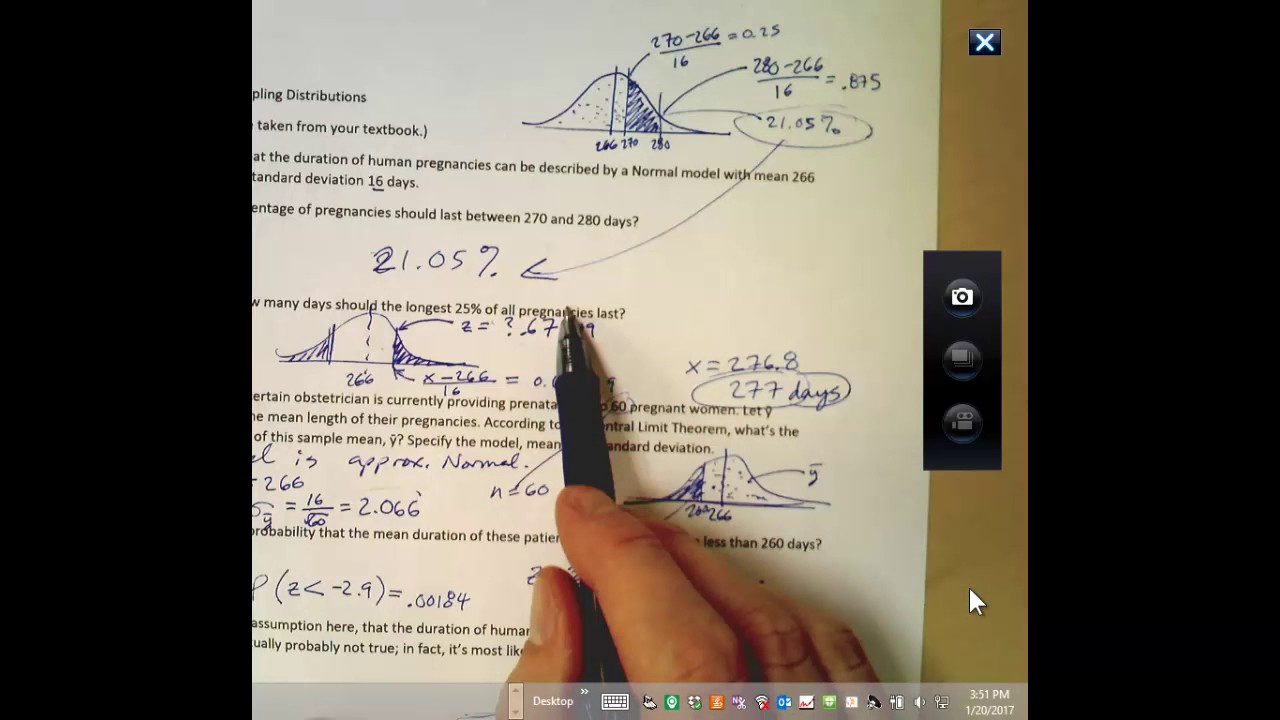 270-266 / 16 = 0.25
280-266 / 16 = .875
21.05%
266 270 280
pling Distributions
taken from your textbook.)
at the duration of human pregnancies can be described by a Normal model with mean 266
tandard deviation 16 days.
entage of pregnancies should last between 270 and 280 days?
21.05%
w many days should the longest 25% of all pregnancies last?
z = ? .67
266
x-266 / 16 = 0.
x = 276.8
277 days
ertain obstetrician is currently providing prenata 60 pregnant women. Let ȳ
he mean length of their pregnancies. According to ntral Limit Theorem, what's the
of this sample mean, ȳ? Specify the model, mean tandard deviation.
el is approx. Normal.
= 266
n = 60
σȳ = 16/√60 = 2.066
ȳ
260 266
probability that the mean duration of these patie less than 260 days?
P(z < -2.9) = .00184
assumption here, that the duration of human
ually probably not true; in fact, it's most lik
Desktop
3:51 PM
1/20/2017